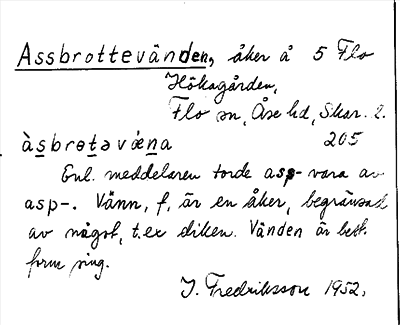 Assbrottevänden, åker å 5 Flo
Hökagården,
Flo sn, Åse hd, Skar. l.
205
àsbrotəvǽna
Enl. meddelaren torde asp- vara av
asp-. Vänn, f, är en åker, begränsad
av något, t.ex diken. Vänden är best.
form sing.
J. Fredriksson 1952.